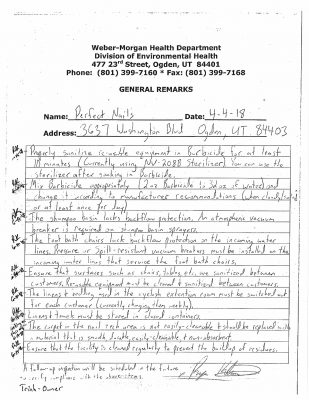 Weber-Morgan Health Department
Division of Environmental Health
477 23rd Street, Ogden, UT 84401
Phone: (801) 399-7160 * Fax: (801) 399-7168
GENERAL REMARKS
Name: Perfect Nails Date: 4-4-18
Address: 3637 Washington Blvd Ogden, UT 84403
Properly sanitize reusable equipment in Barbicide for at least
10 minutes (Currently using NV-208B Sterilizer). You can use the
sterilizer after soaking in Barbicide.
Mix Barbicide appropriately (2 oz Barbicide to 32 oz of water) and
change it according to manufacturer recommendations (when
or at least once per day)
The shampoo basin lacks backflow protection. An atmospheric vacuum
breaker is required on shampoo basin sprayers.
The foot bath chairs lack backflow protection on the incoming water
lines. Pressure or spill-resistant vacuum breakers must be installed on the
incoming water lines that service the foot bath chairs.
Ensure that surfaces such as chairs, tables, etc. are sanitized between
customers. Reusable equipment must be cleaned & sanitized between customers.
The linens & bedding used in the eyelash extension room must be switched out
for each customer (currently changing them weekly).
Linens & towels must be stored in closed containers.
The carpet in the nail tech area is not easily-cleanable & should be replaced with
a material that is smooth, durable, easily-cleanable, & non-absorbent.
Ensure that the facility is cleaned regularly to prevent the buildup of residues.
A follow-up inspection will be scheduled in the future
to verify compliance with the above items.
Trinh - Owner